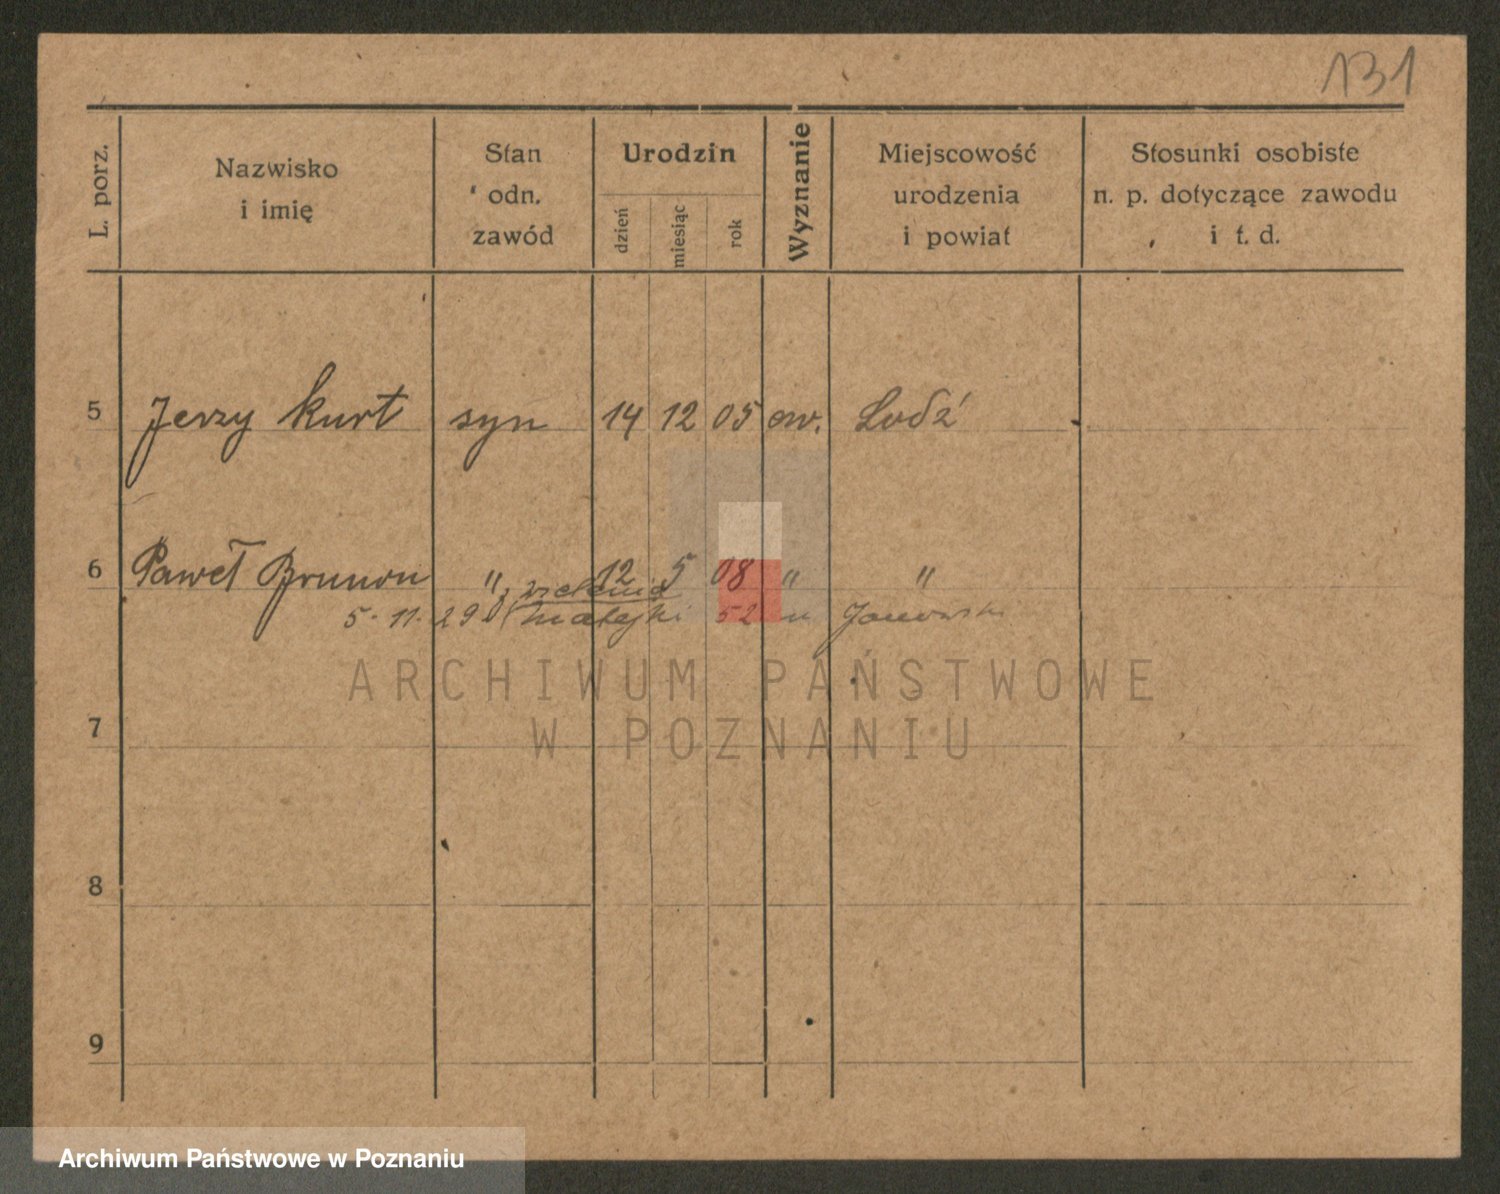 131
L. porz.
Nazwisko
i imię
Stan
odn.
zawód
Urodzin
dzień
miesiąc
rok
Wyznanie
Miejscowość
urodzenia
i powiat
Stosunki osobiste
n. p. dotyczące zawodu
i t. d.
5 Jerzy Kurt syn 14 12 05 ew. Lodź
6 Paweł Brunon " 12 5 08 " "
5. 11. 29 Matejki 52 u Janowski
ARCHIWUM PAŃSTWOWE
W POZNANIU
7
8
9
Archiwum Państwowe w Poznaniu